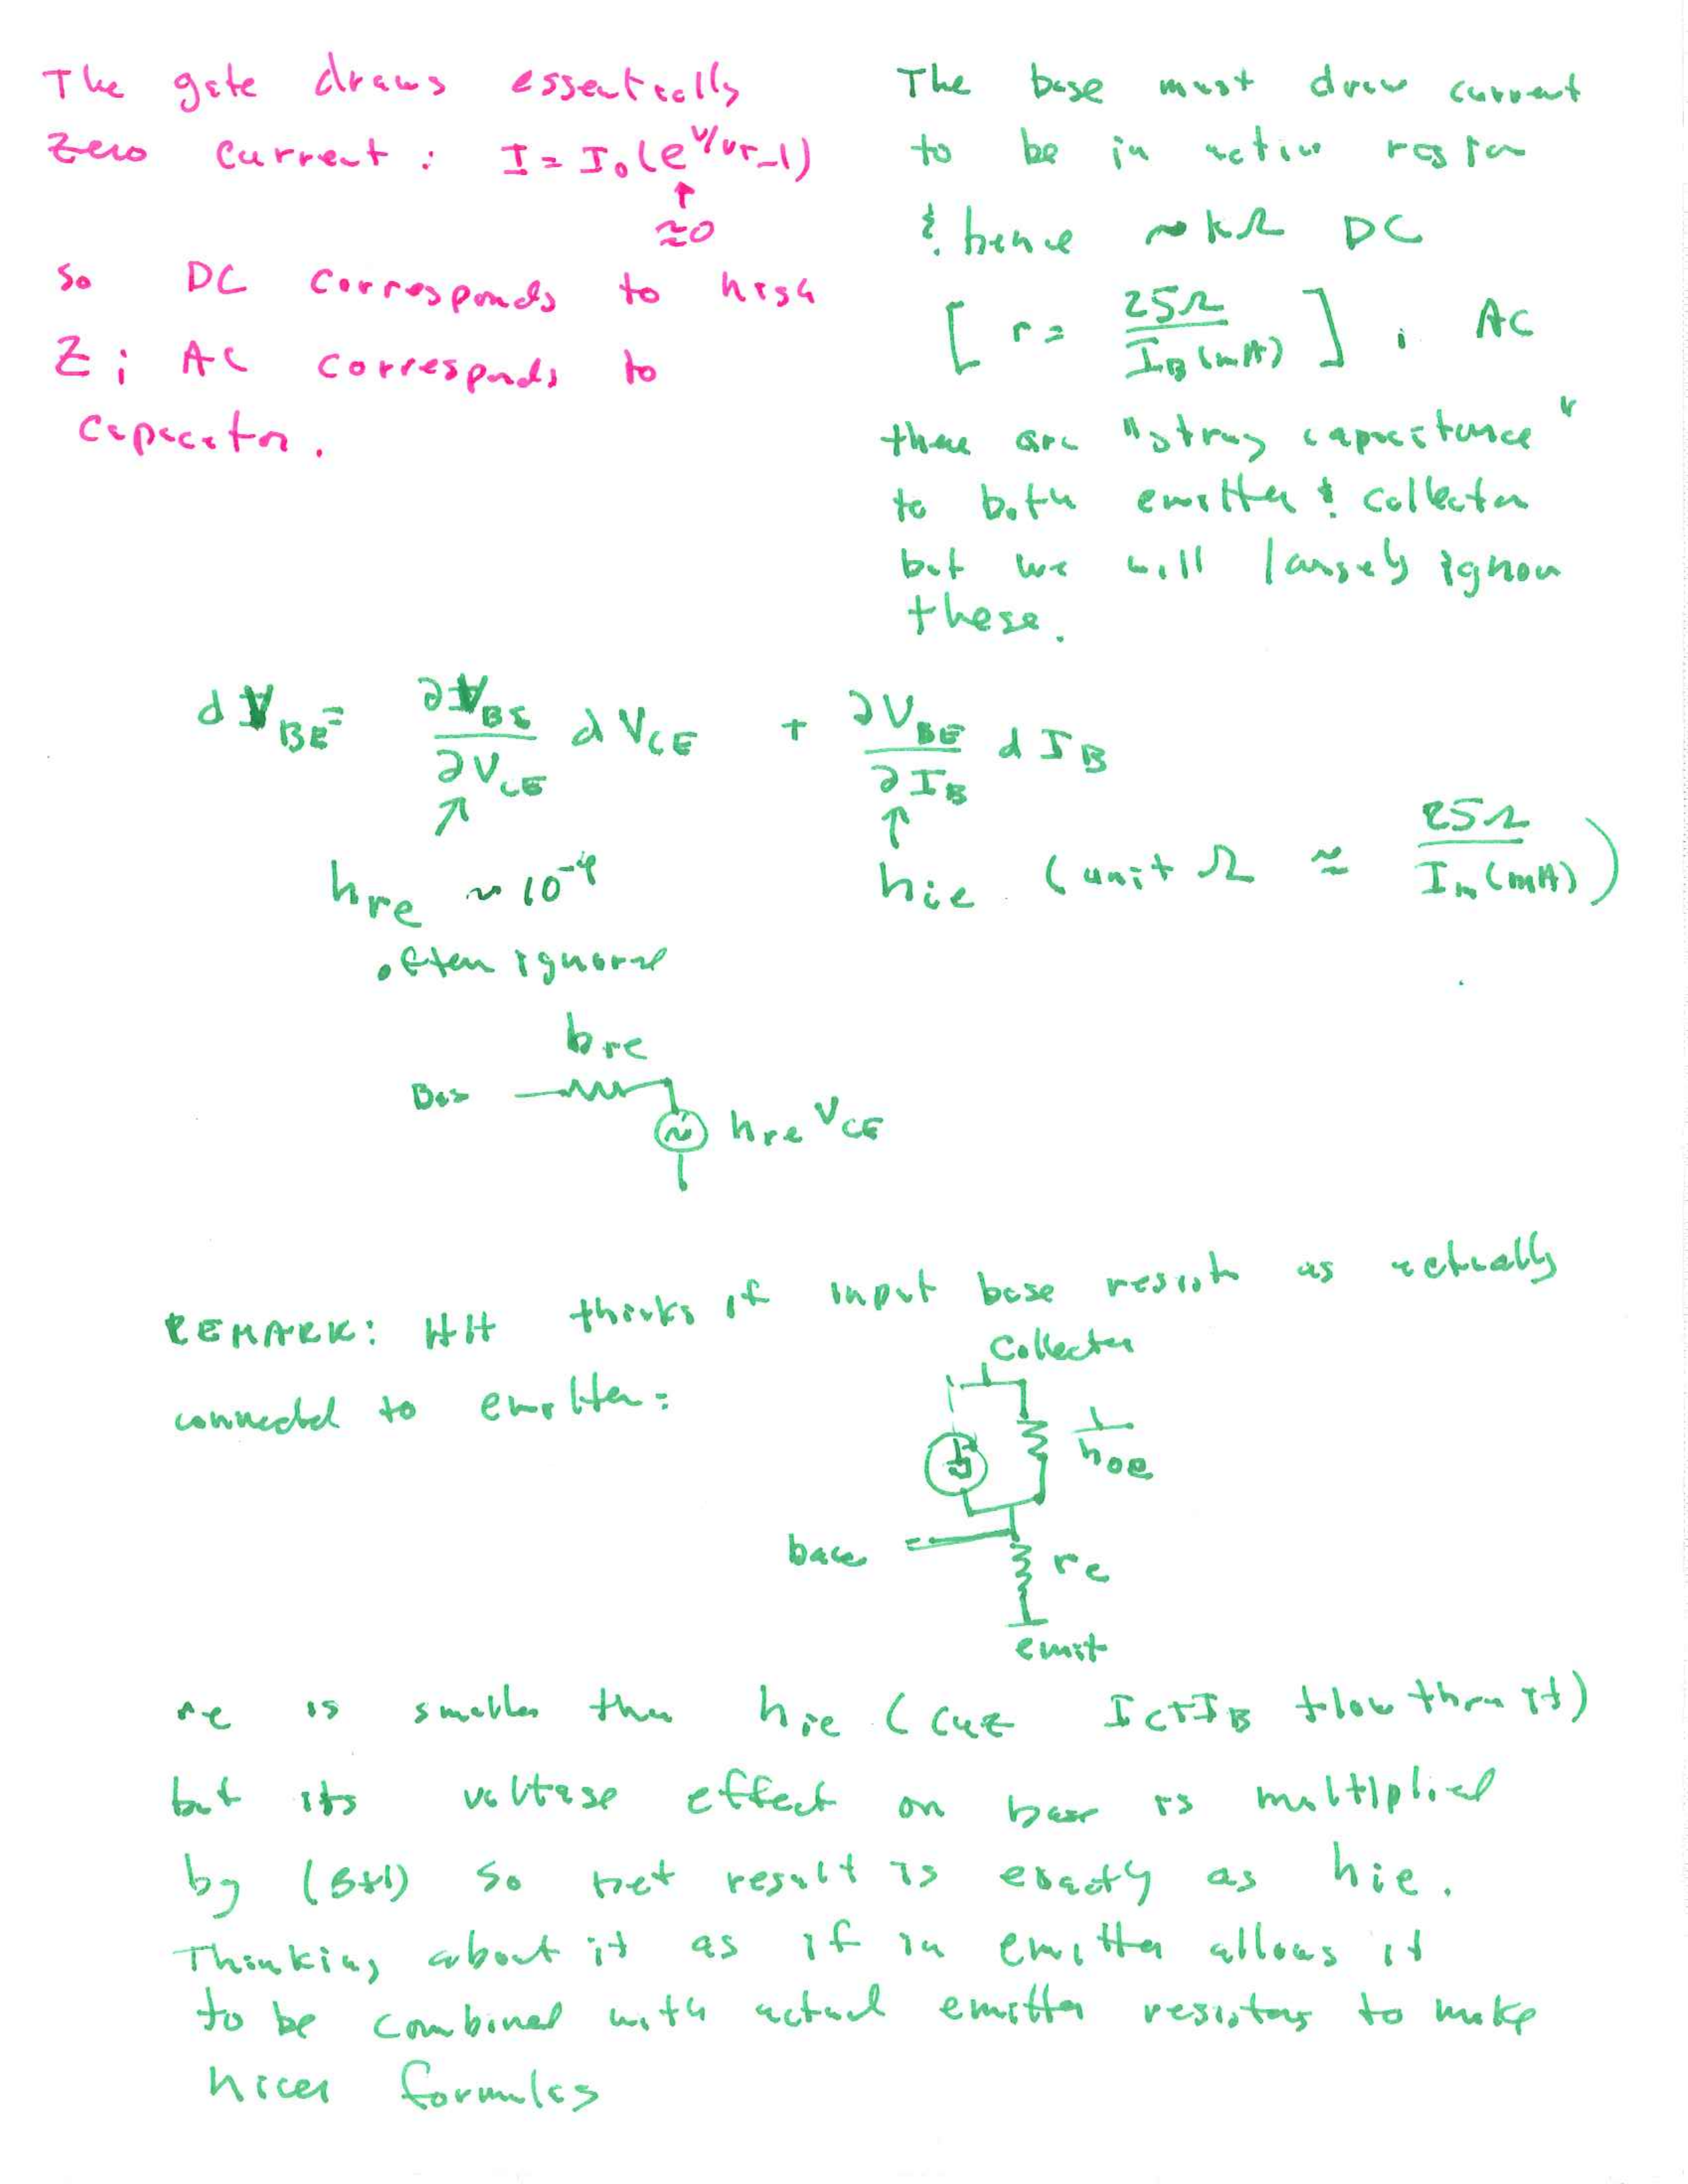 The gate draws essentially
zero current: I = I₀(e^(V/VT) - 1)
↑
≈0
so DC corresponds to high
Z; AC corresponds to
capacitor.
The base must draw current
to be in active region
& hence ~kΩ DC
[ r = 25Ω / I_B(mA) ] ; AC
there are "stray capacitance"
to both emitter & collector
but we will largely ignore
these.
dV_BE = ∂V_BE/∂V_CE dV_CE + ∂V_BE/∂I_B dI_B
↗ ↑
h_re ~ 10⁻⁴ h_ie (unit Ω ≈ 25Ω / I_B(mA))
often ignored
h_re
Bas
h_re V_CE
REMARK: HH thinks of input base resist as actually
connected to emitter:
Collector
1/h_oe
base
r_e
emit
r_e is smaller than h_ie (cuz I_C+I_B flow thru it)
but its voltage effect on base is multiplied
by (β+1) so net result is exactly as h_ie.
Thinking about it as if in emitter allows it
to be combined with actual emitter resistors to make
nicer formulas